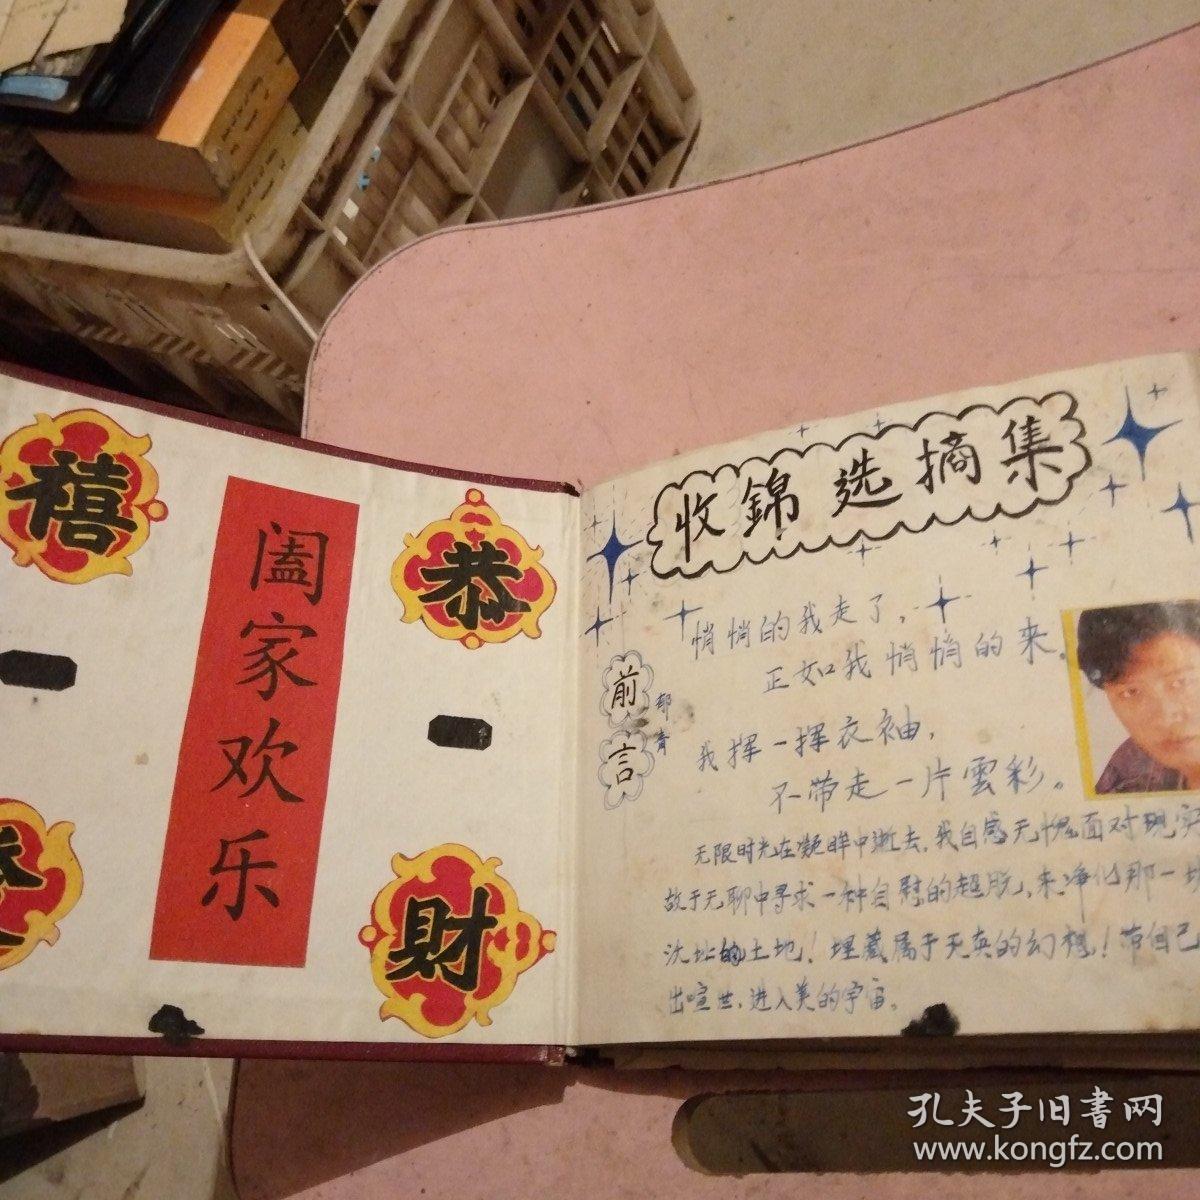 禧
恭
阖家欢乐
財
收錦选摘集
前言
郁青
悄悄的我走了，
正如我悄悄的来。
我挥一挥衣袖，
不带走一片雲彩。
无限时光在凝眸中逝去，我自感无愧面对现实
故于无聊中寻求一种自慰的超脱，来净化那一块
土地！埋藏属于天真的幻想！带自己
出喧世，进入美的宇宙。
孔夫子旧書网
www.kongfz.com